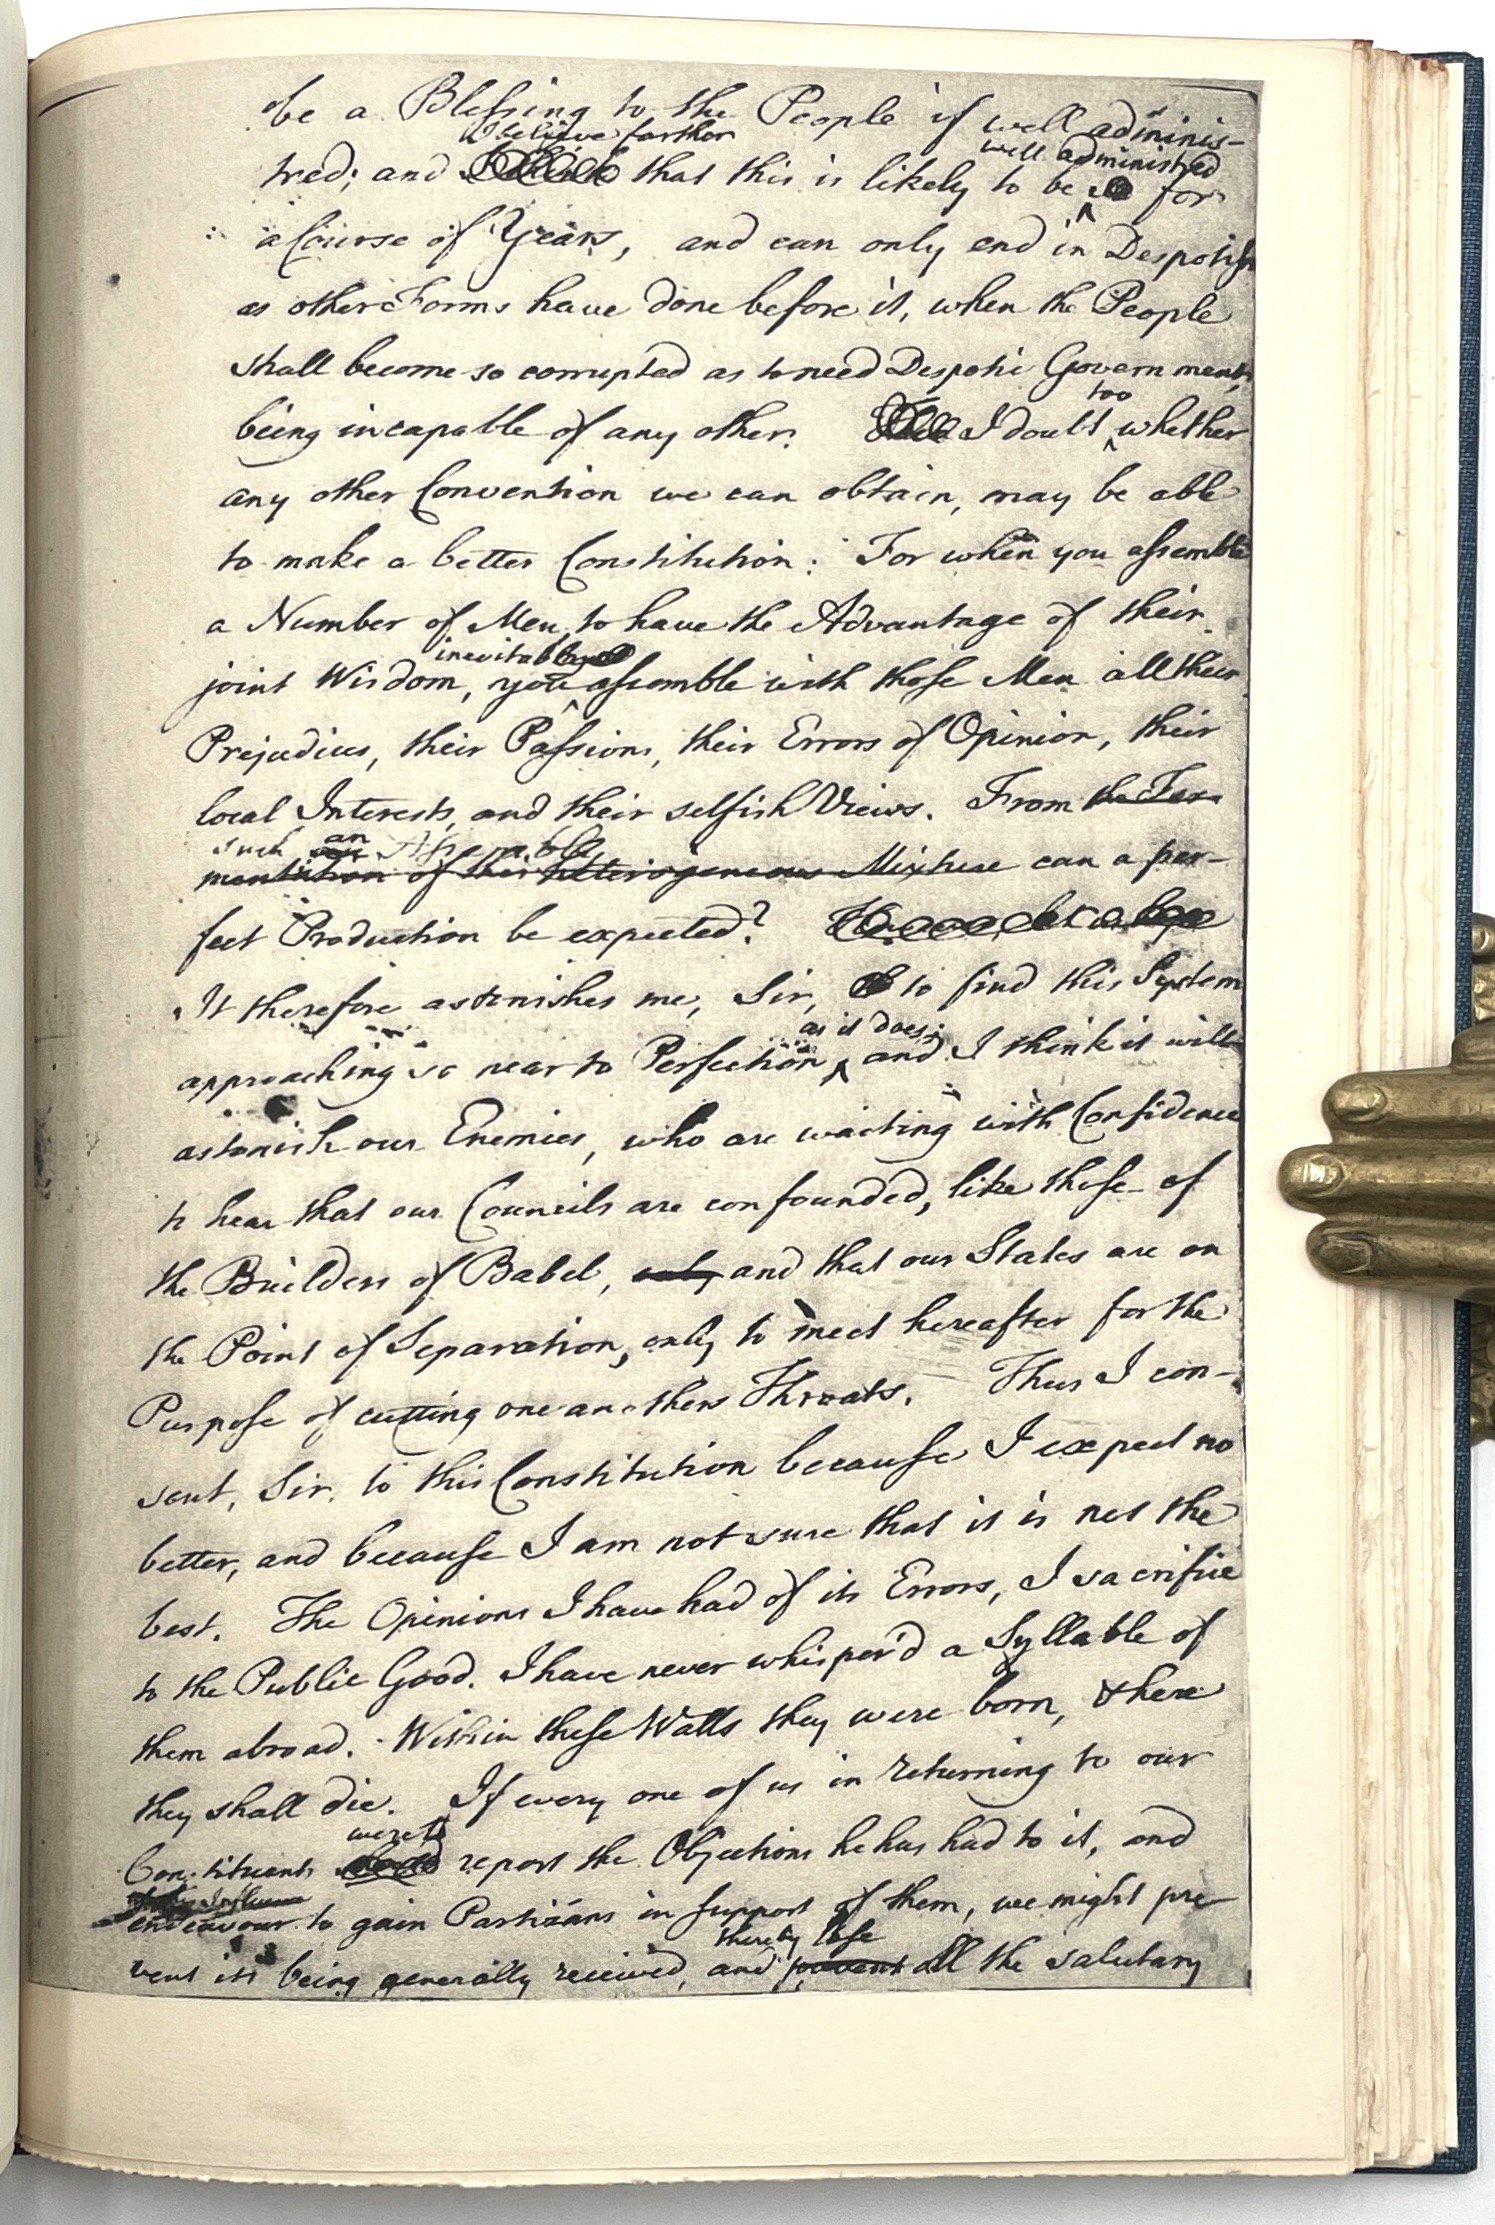 be a Blessing to the People if well adminis-
I believe farther
well administred
tred; and that this is likely to be for
a Course of Years, and can only end in Despotism
as other Forms have done before it, when the People
shall become so corrupted as to need Despotic Government,
too
being incapable of any other. I doubt whether
any other Convention we can obtain, may be able
to make a better Constitution: For when you assemble
a Number of Men, to have the Advantage of their
inevitably
joint Wisdom, you assemble with those Men all their
Prejudices, their Passions, their Errors of Opinion, their
local Interests, and their selfish Views. From the Fer-
such an Assembly
mentation of their heterogeneous Mixture can a per-
fect Production be expected?
It therefore astonishes me, Sir, to find this System
as it does;
approaching so near to Perfection, and I think it will
astonish our Enemies, who are waiting with Confidence
to hear that our Councils are confounded, like those of
the Builders of Babel, only and that our States are on
the Point of Separation, only to meet hereafter for the
Purpose of cutting one anothers Throats. Thus I con-
sent, Sir, to this Constitution because I expect no
better, and because I am not sure that it is not the
best. The Opinions I have had of its Errors, I sacrifice
to the Public Good. I have never whisper'd a Syllable of
them abroad. Within these Walls they were born, & here
they shall die. If every one of us in returning to our
were to
Constituents report the Objections he has had to it, and
Influence
endeavour to gain Partizans in support of them, we might pre
thereby lose
vent its being generally received, and prevent all the salutary